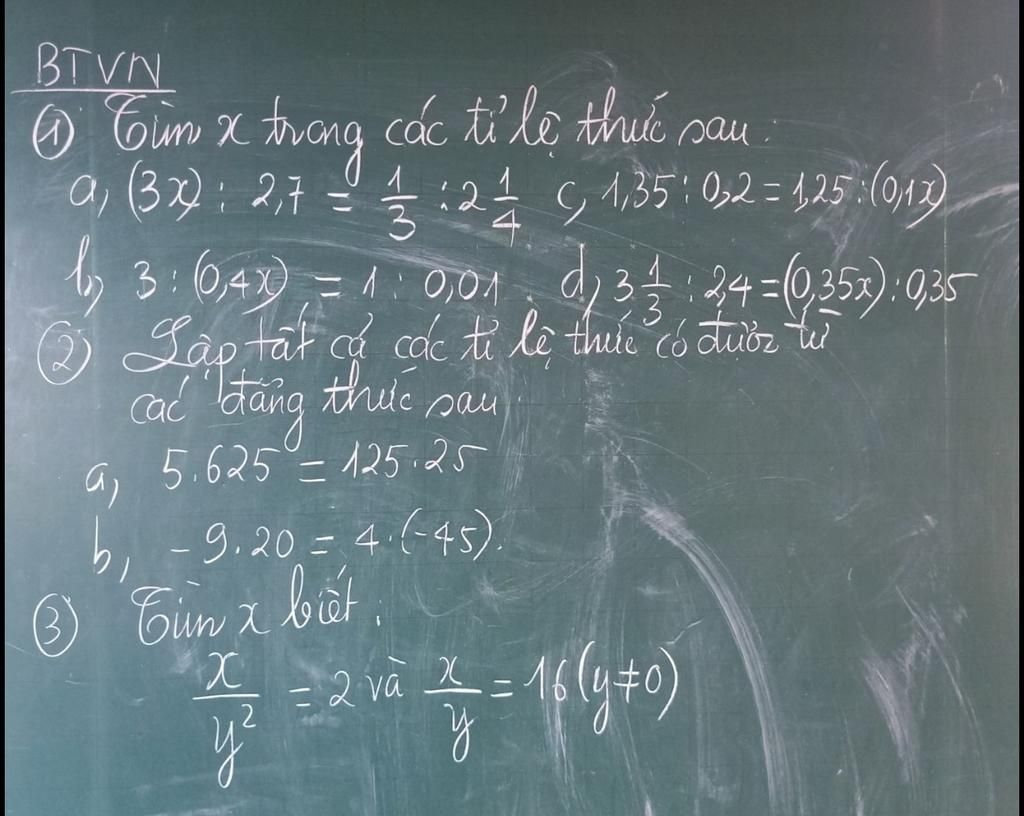 BTVN
① Tìm x trong các tỉ lệ thức sau:
a, (3x) : 2,7 = 1/3 : 2 1/4 c, 1,35 : 0,2 = 1,25 : (0,1x)
b, 3 : (0,4x) = 1 : 0,01 d, 3 1/3 : 2,4 = (0,35x) : 0,35
② Lập tất cả các tỉ lệ thức có được từ
các đẳng thức sau:
a, 5.625 = 125.25
b, -9.20 = 4.(-45).
③ Tìm x biết:
x/y² = 2 và x/y = 16 (y≠0)